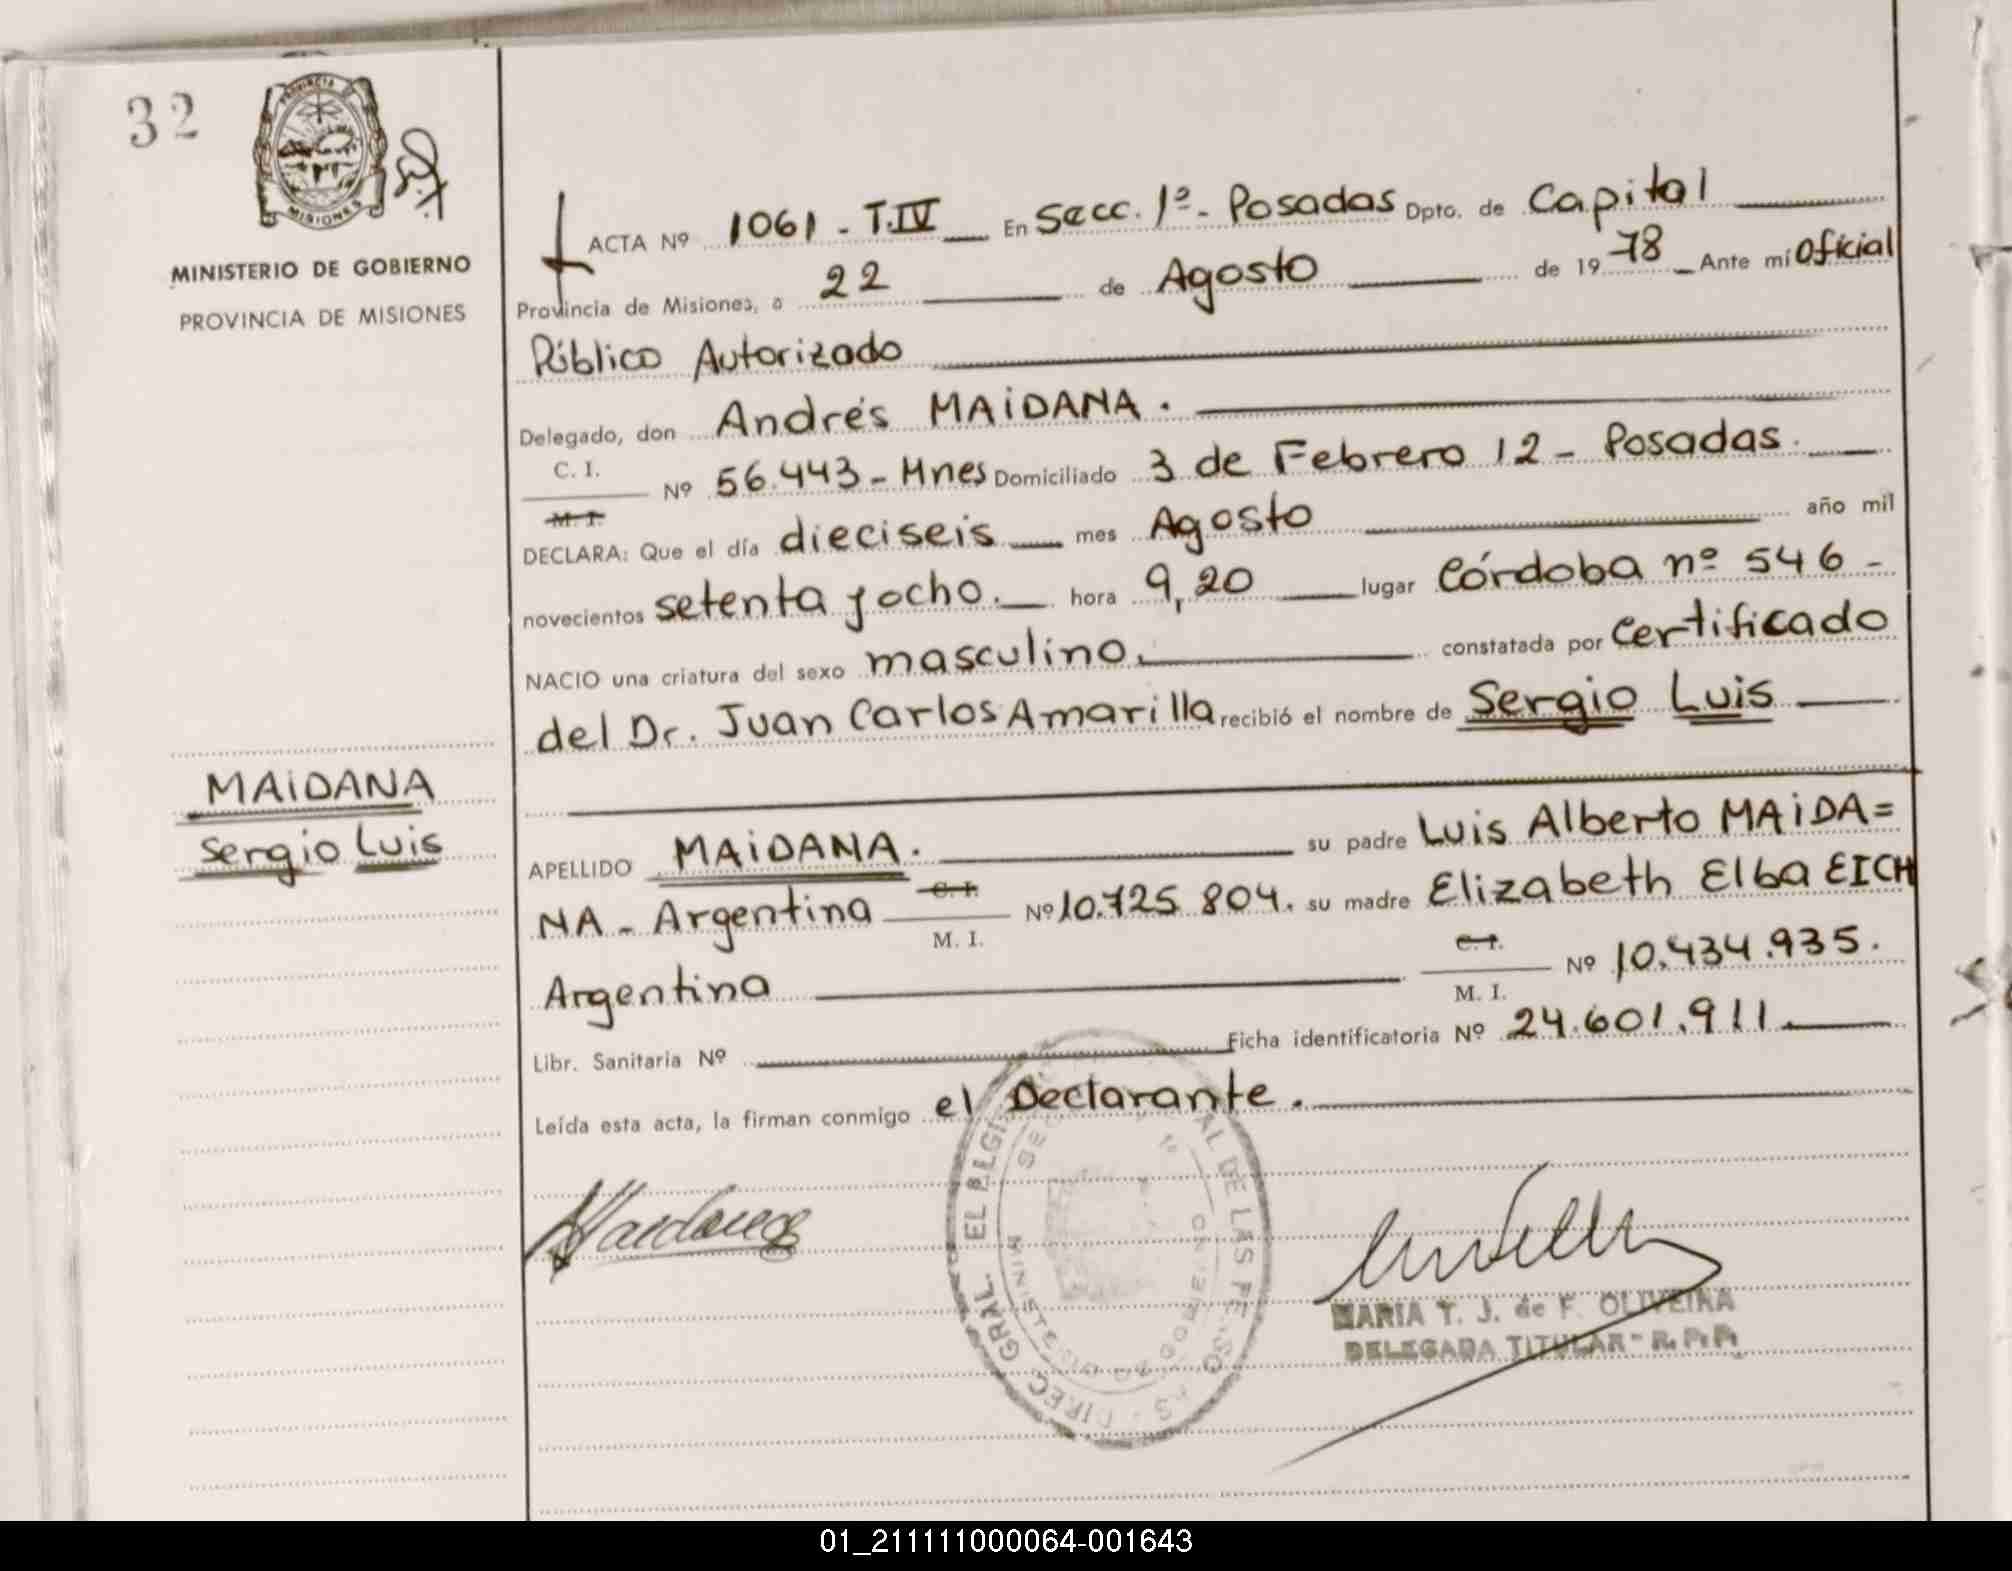 32
PROVINCIA
MISIONES
MINISTERIO DE GOBIERNO
PROVINCIA DE MISIONES
MAiDANA
Sergio Luis
ACTA Nº 1061 - T.IV En Secc. 1ª - Posadas Dpto. de Capital
Provincia de Misiones, a 22 de Agosto de 1978 Ante mí Oficial
Público Autorizado
Delegado, don Andrés MAiDANA.
C. I.
M. I.
Nº 56.443 - Mnes Domiciliado 3 de Febrero 12 - Posadas.
DECLARA: Que el día dieciseis mes Agosto año mil
novecientos setenta y ocho. hora 9,20 lugar Córdoba nº 546 -
NACIO una criatura del sexo masculino. constatada por Certificado
del Dr. Juan Carlos Amarilla recibió el nombre de Sergio Luis
APELLIDO MAiDANA. su padre Luis Alberto MAiDA=
NA - Argentina C. I. M. I. Nº 10.725.804. su madre Elizabeth Elba EICH
Argentina C. I. M. I. Nº 10.434.935.
Libr. Sanitaria Nº Ficha identificatoria Nº 24.601.911
Leída esta acta, la firman conmigo el Declarante.
Maidana
MARIA T. J. de F. OLIVEIRA
DELEGADA TITULAR - R.P.P.
01_211111000064-001643